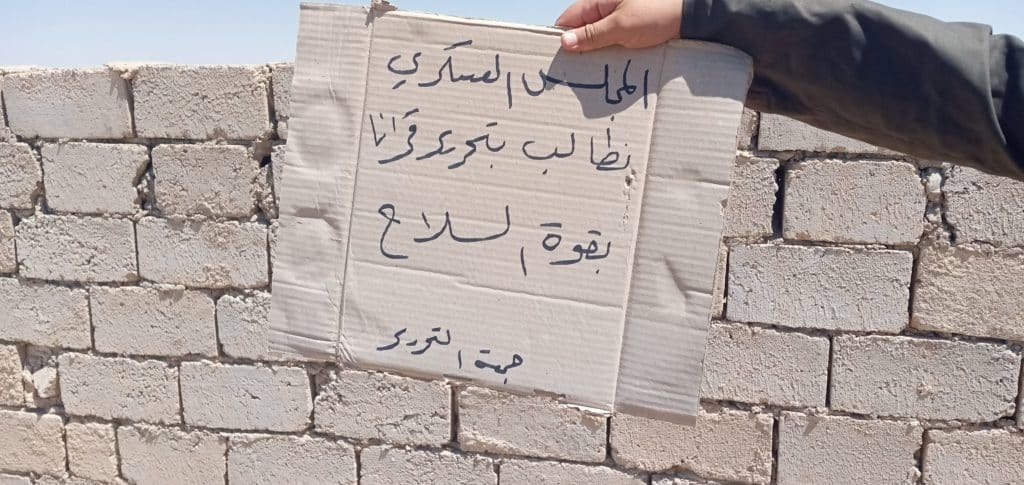 المجلس العسكري
نطالب بتحرير قرانا
بقوة السلاح
جبهة التحرير